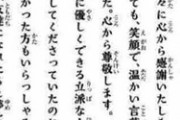 々に心から感謝いたし
ても、笑顔で、温かい言葉
た。心から尊敬します。
に優しくできる立派な
してくださっていたのだ
かった方もいらっしゃる